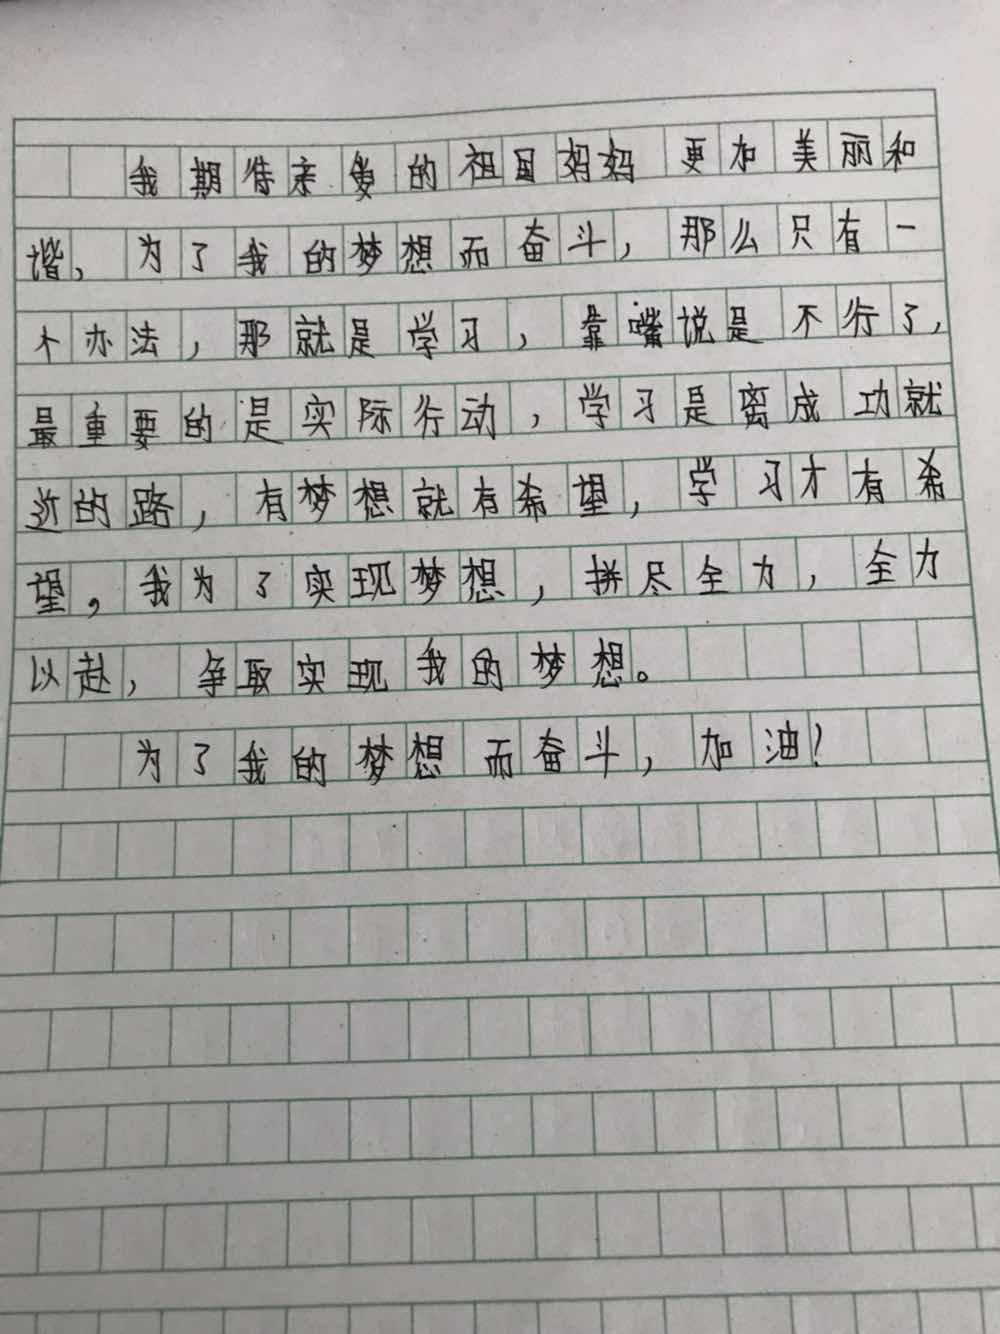 我期待亲爱的祖国妈妈更加美丽和
谐，为了我的梦想而奋斗，那么只有一
个办法，那就是学习，靠嘴说是不行了，
最重要的是实际行动，学习是离成功就
近的路，有梦想就有希望，学习才有希
望，我为了实现梦想，拼尽全力，全力
以赴，争取实现我的梦想。
为了我的梦想而奋斗，加油！